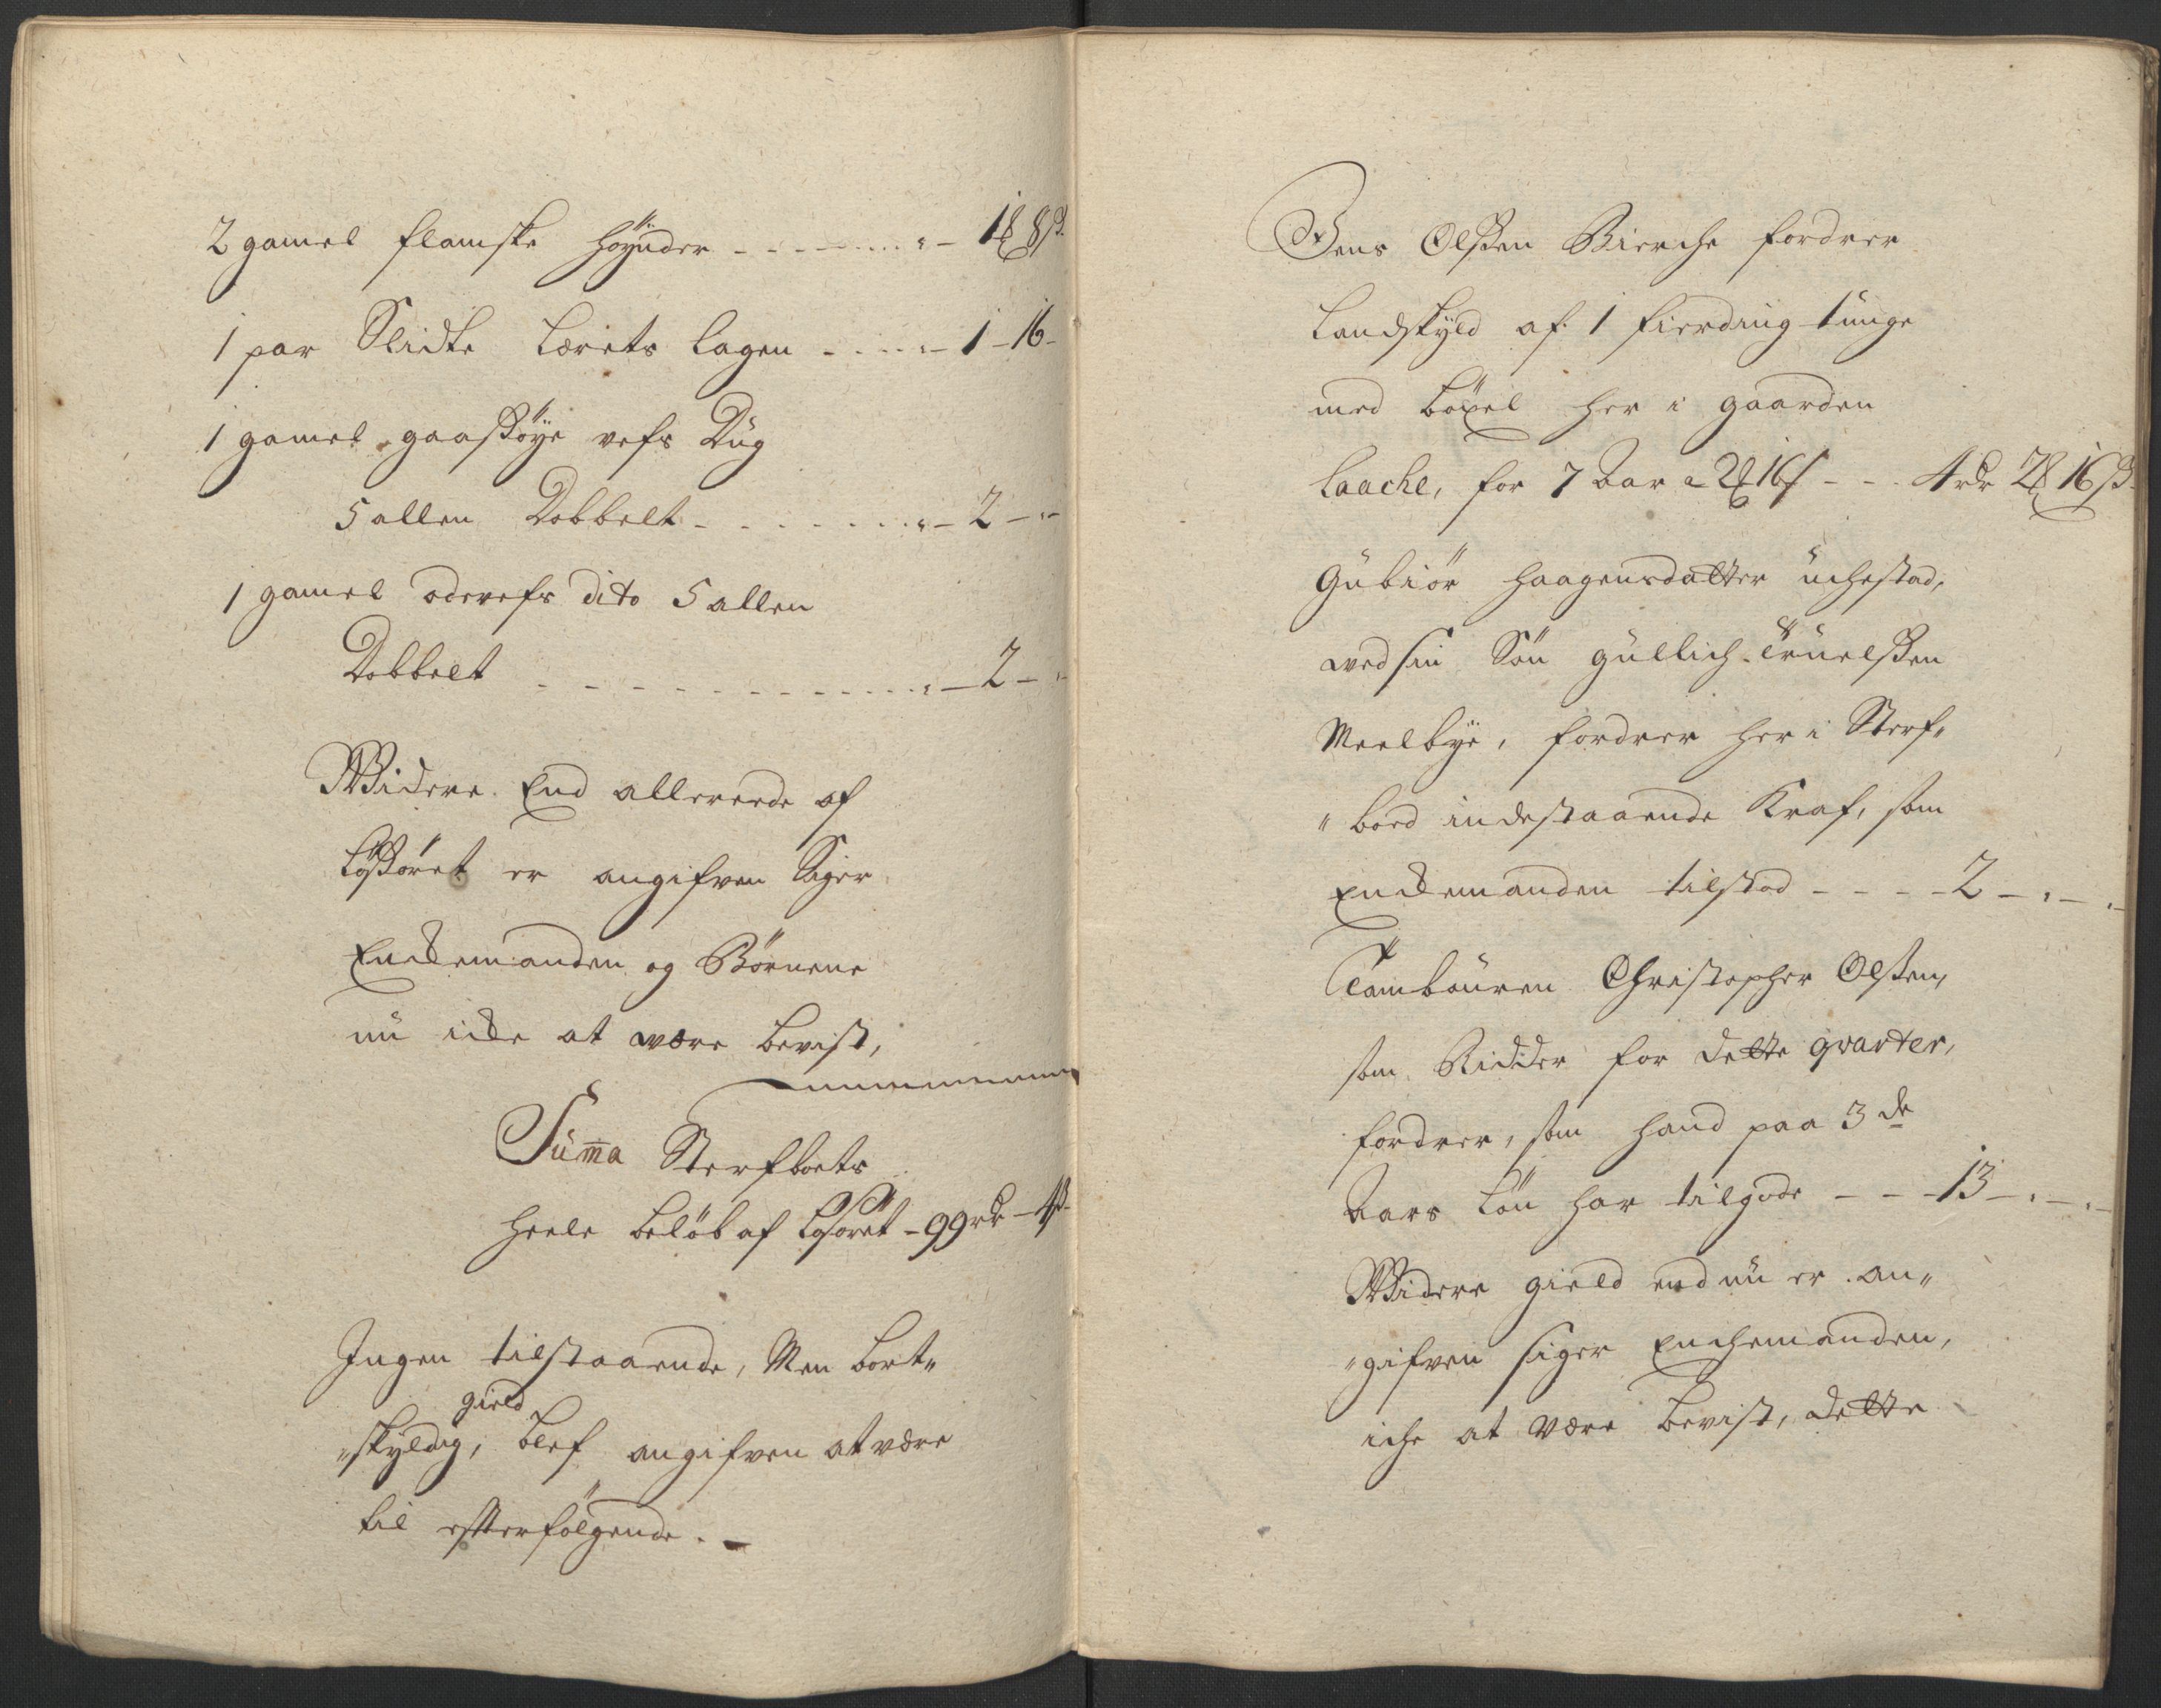 2 gamel flamske höÿnder - - - - - - - - „ - 1 8ß
1 par Slidte Lærets lagen - - - - „ - 1 - 16 -
1 gamel gaasöÿe vefs Dug
5 allen Dobbelt - - - - - - - - „ - 2 - „ -
1 gamel odevefs dito 5 allen
Dobbelt - - - - - - - - - - - - „ - 2 - „ -
Widere End allereede af
Lößöret er angifven Siger
Enckemanden og Börnene
nu icke at være bevist,
Sum̄a Sterfboets
heele belöb af Lösöret - 99 rdr - 4ß
Ingen tilstaaende, Men bort„
gield
„skÿldig, blef angifven at være
til efterfölgende. -
Jens Olßen Bierche fordrer
Landskÿld af 1 fierding tunge
med böxel her i gaarden
Laache, for 7 Aar a 2 16ß - - - 4 rdr 2 16ß
Gubiör Haagensdatter uchestad,
ved sin Sön gullich Truelßen
Meelbÿe, fordrer her i Sterf„
„boed indestaaende Kraf, som
Enckemanden tilstod - - - - 2 - „ - „ -
Tambouren Christopher Olßen,
som Ridder for dette qvarter,
fordrer, som hand paa 3de
Aars Lön har tilgode - - - 13 - „ - „ -
Widere gield end nu er an„
„gifven siger Enchemanden,
iche at være bevist, dette